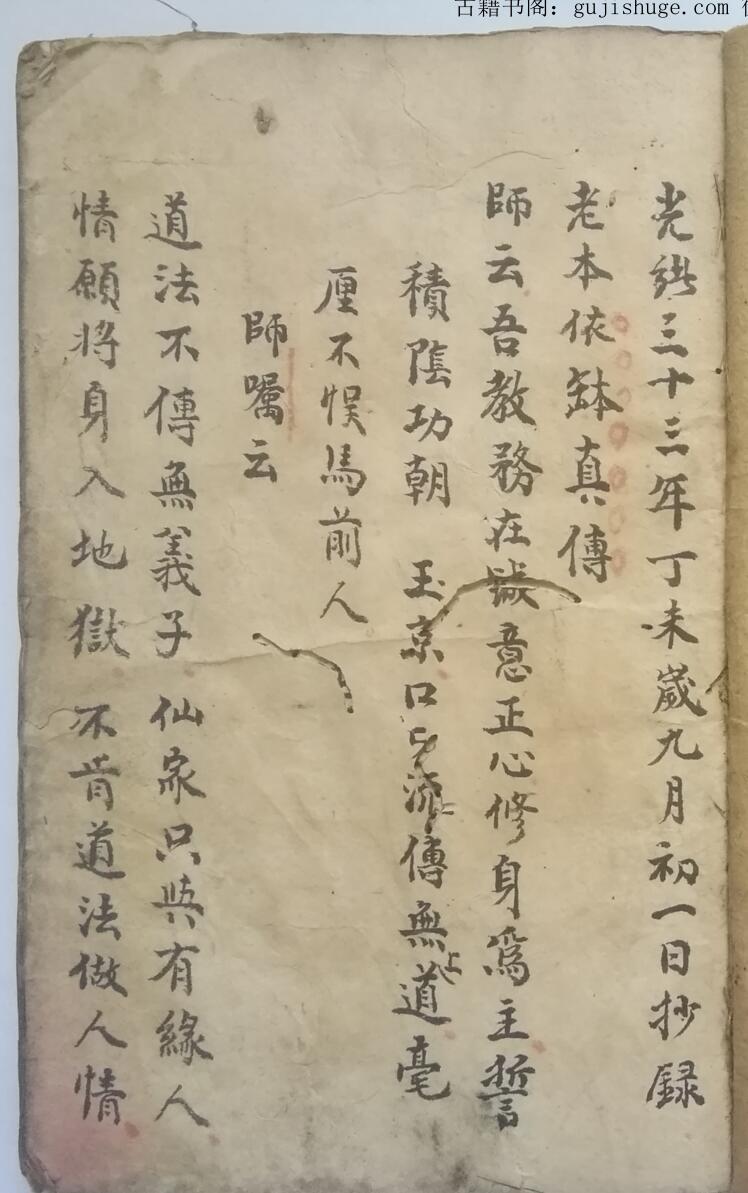 古籍书阁：gujishuge.com
光緒三十三年丁未歲九月初一日抄錄
老本依缽真傳
師云吾教務在誠意正心修身為主誓
積陰功朝 玉京口口流傳無上道毫
厘不悮馬前人
師囑云
道法不傳無義子 仙家只與有緣人
情願將身入地獄 不肯道法做人情